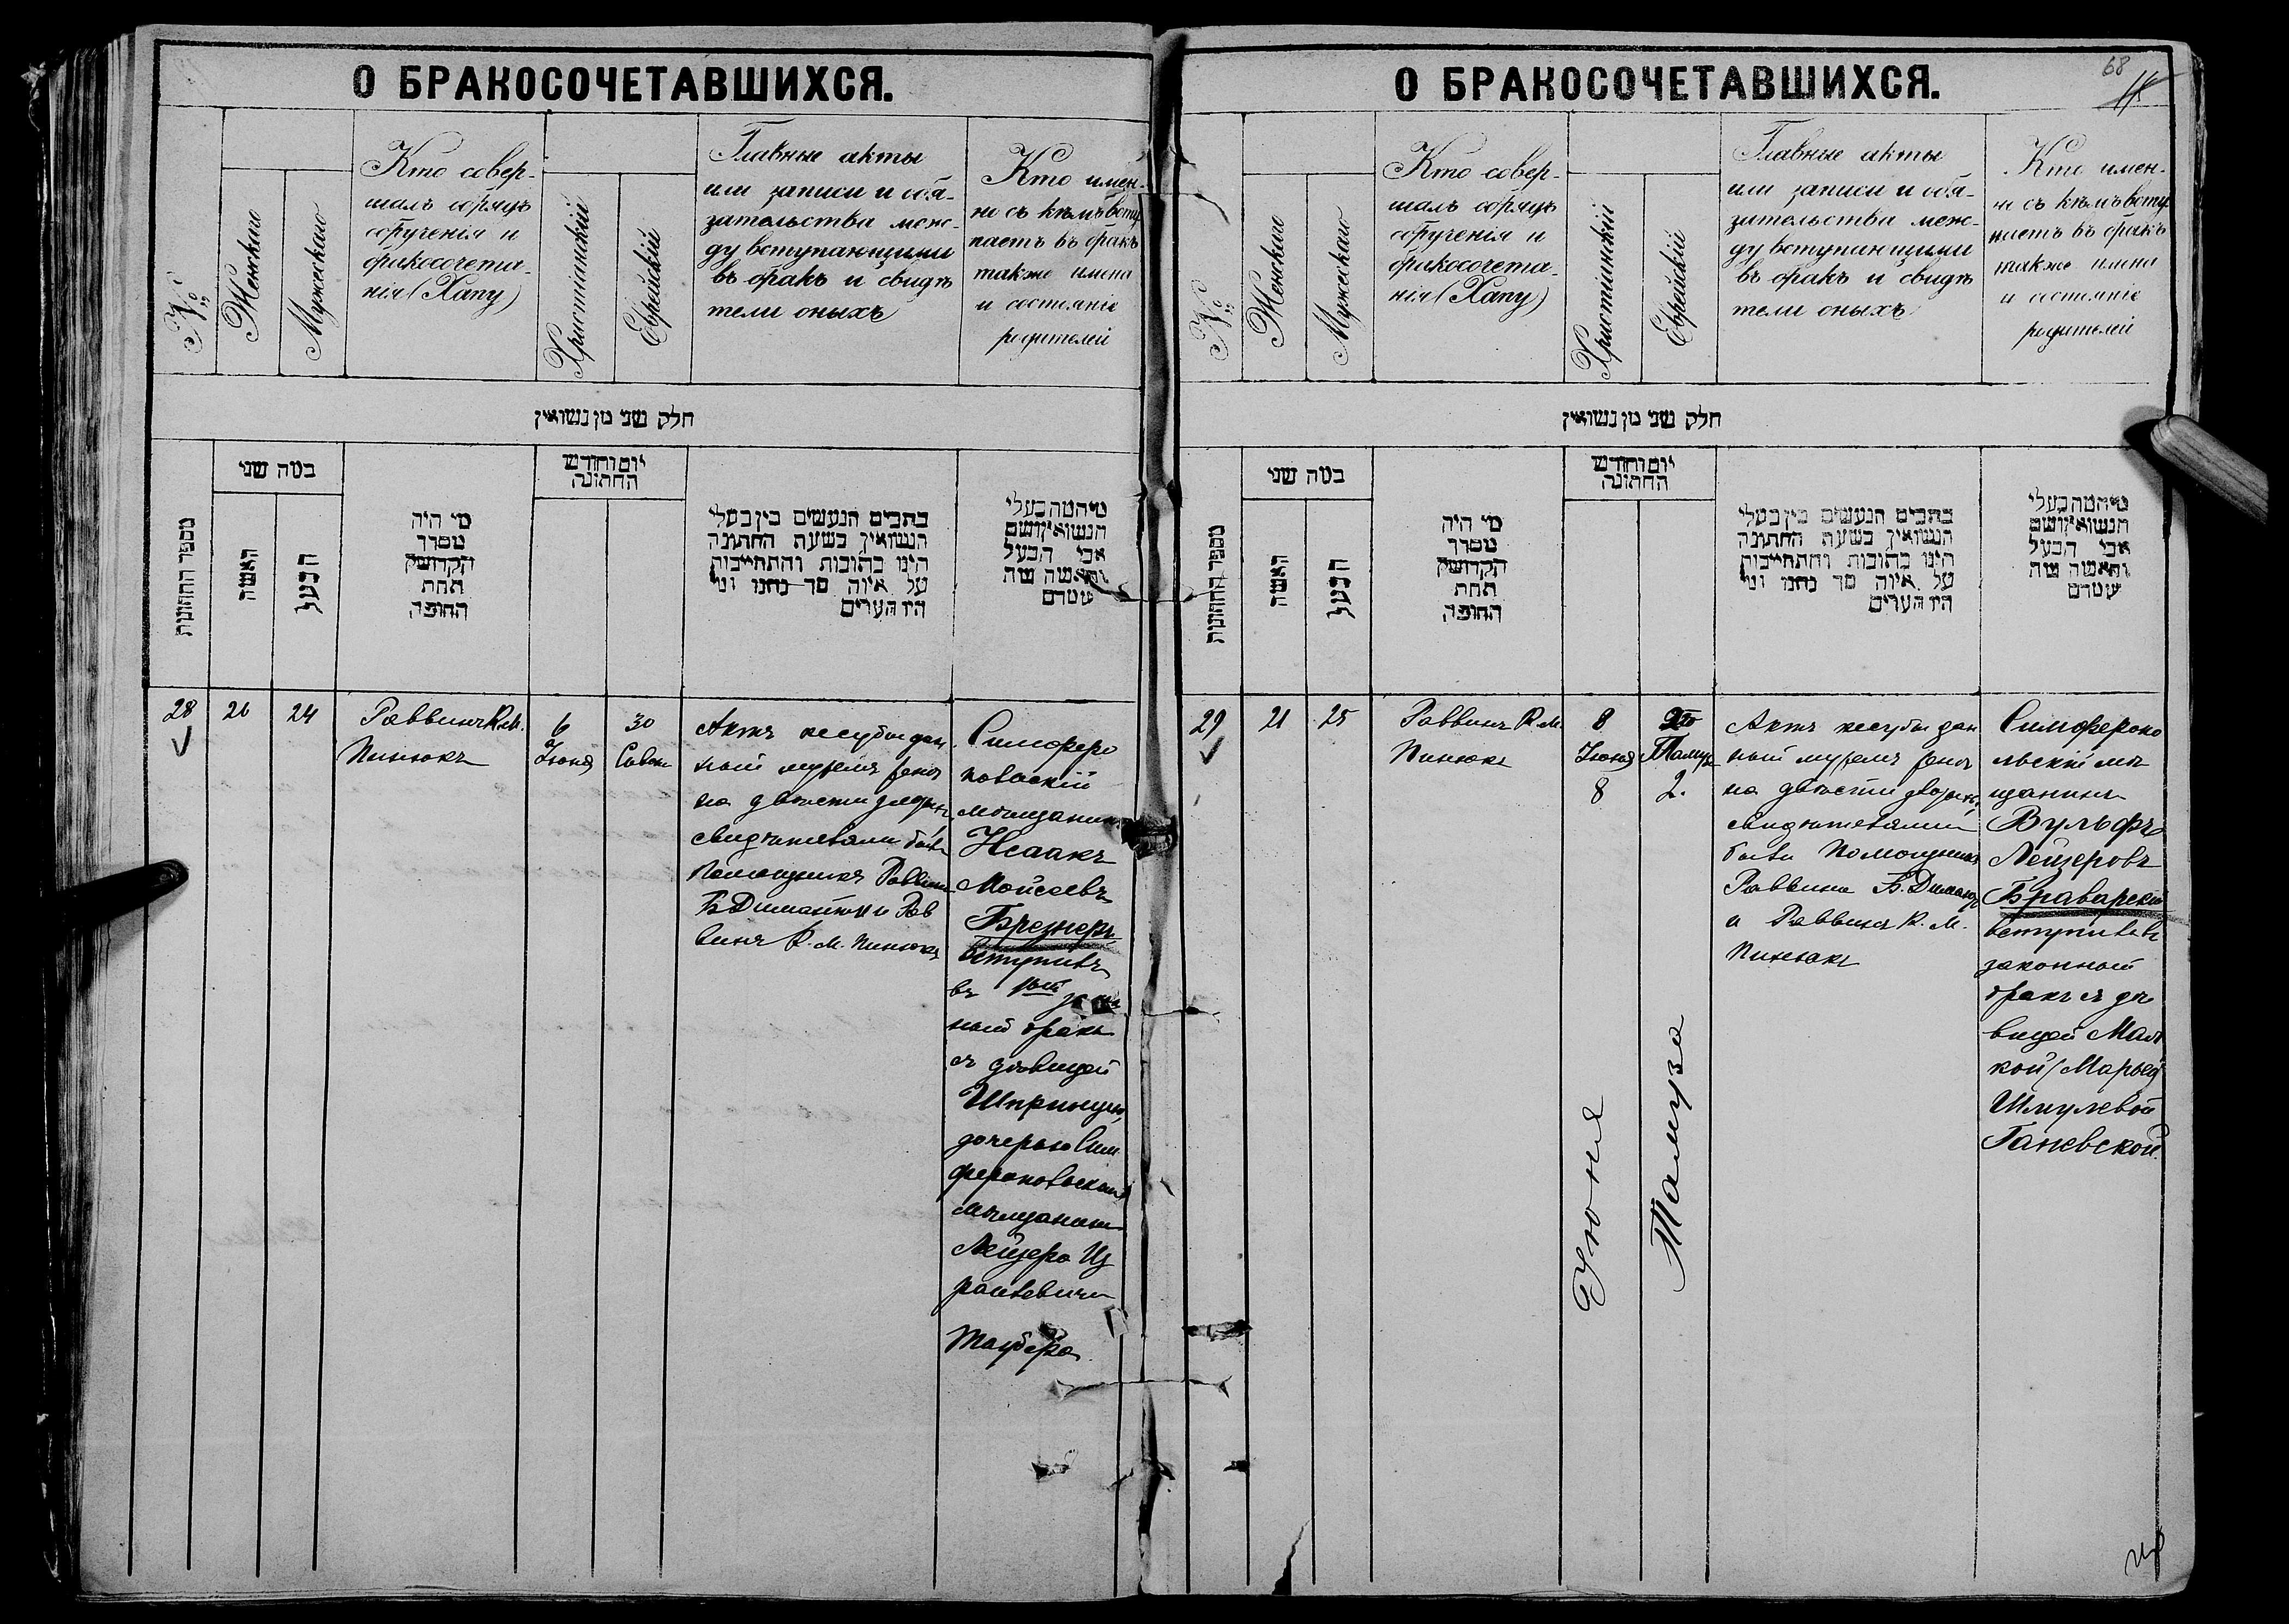 О БРАКОСОЧЕТАВШИХСЯ.
№
Женскаго
Мужескаго
Кто совер-
шалъ обрядъ
обрученія и
бракосочета-
нія (Хапу)
Христіанскій
Еврейскій
Главные акты
или записи и обя-
зательства меж-
ду вступающими
въ бракъ и свидѣ
тели оныхъ
Кто имен-
но съ кѣмъ всту
паетъ въ бракъ
также имена
и состояніе
родителей
חלק שני מן נשואין
מספר החתונות
כמה שני
האשה
הבעל
מי היה
מסדר
הקדושין
תחת
החופה
יום וחודש
החתונה
כתבים הנעשים בין בעלי
הנשואין בשעת החתונה
היינו כתובות והתחייבות
על איזה סך נתנו ומי
היו העדים
מי המה בעלי
הנשואין ושם
אבי הבעל
והאשה מה
שמם
28
26
24
Раввинъ К.М.
Пинюкъ
6
Іюня
30
Сивонъ
Актъ кесубы дан
ный мужемъ женѣ
на двѣсти злотыхъ
свидѣтелями были
Помощникъ Раввина
Б Димантъ и Рав
винъ К. М. Пинюкъ
Симферо
польскій
мѣщанинъ
Исаакъ
Мойсеевъ
Брезнеръ
вступилъ
въ 1ый
ный бракъ
съ дѣвицей
Шпринцею,
дочерью Сим
феропольскаго
мѣщанина
Лейзера Из
раилевича
Таубера.
О БРАКОСОЧЕТАВШИХСЯ.
68
№
Женскаго
Мужескаго
Кто совер-
шалъ обрядъ
обрученія и
бракосочета-
нія (Хапу)
Христіанскій
Еврейскій
Главные акты
или записи и обя-
зательства меж-
ду вступающими
въ бракъ и свидѣ
тели оныхъ
Кто имен-
но съ кѣмъ всту
паетъ въ бракъ
также имена
и состояніе
родителей
חלק שני מן נשואין
מספר החתונות
כמה שני
האשה
הבעל
מי היה
מסדר
הקדושין
תחת
החופה
יום וחודש
החתונה
כתבים הנעשים בין בעלי
הנשואין בשעת החתונה
היינו כתובות והתחייבות
על איזה סך נתנו ומי
היו העדים
מי המה בעלי
הנשואין ושם
אבי הבעל
והאשה מה
שמם
29
21
25
Раввинъ К. М.
Пинюкъ
8
Іюня
8
Іюня
Тамузъ
2.
Тамуза
Актъ кесубы дан
ный мужемъ женѣ
на двѣсти злотыхъ,
свидѣтелями
были Помощникъ
Раввина Б. Димантъ
и Раввинъ К. М.
Пинюкъ
Симферопо
льскій мѣ
щанинъ
Вульфъ
Лейзеровъ
Браварскій
вступилъ въ
законный
бракъ съ дѣ
вицей Мал
кой (Марьей)
Шмулевой
Ганевской.